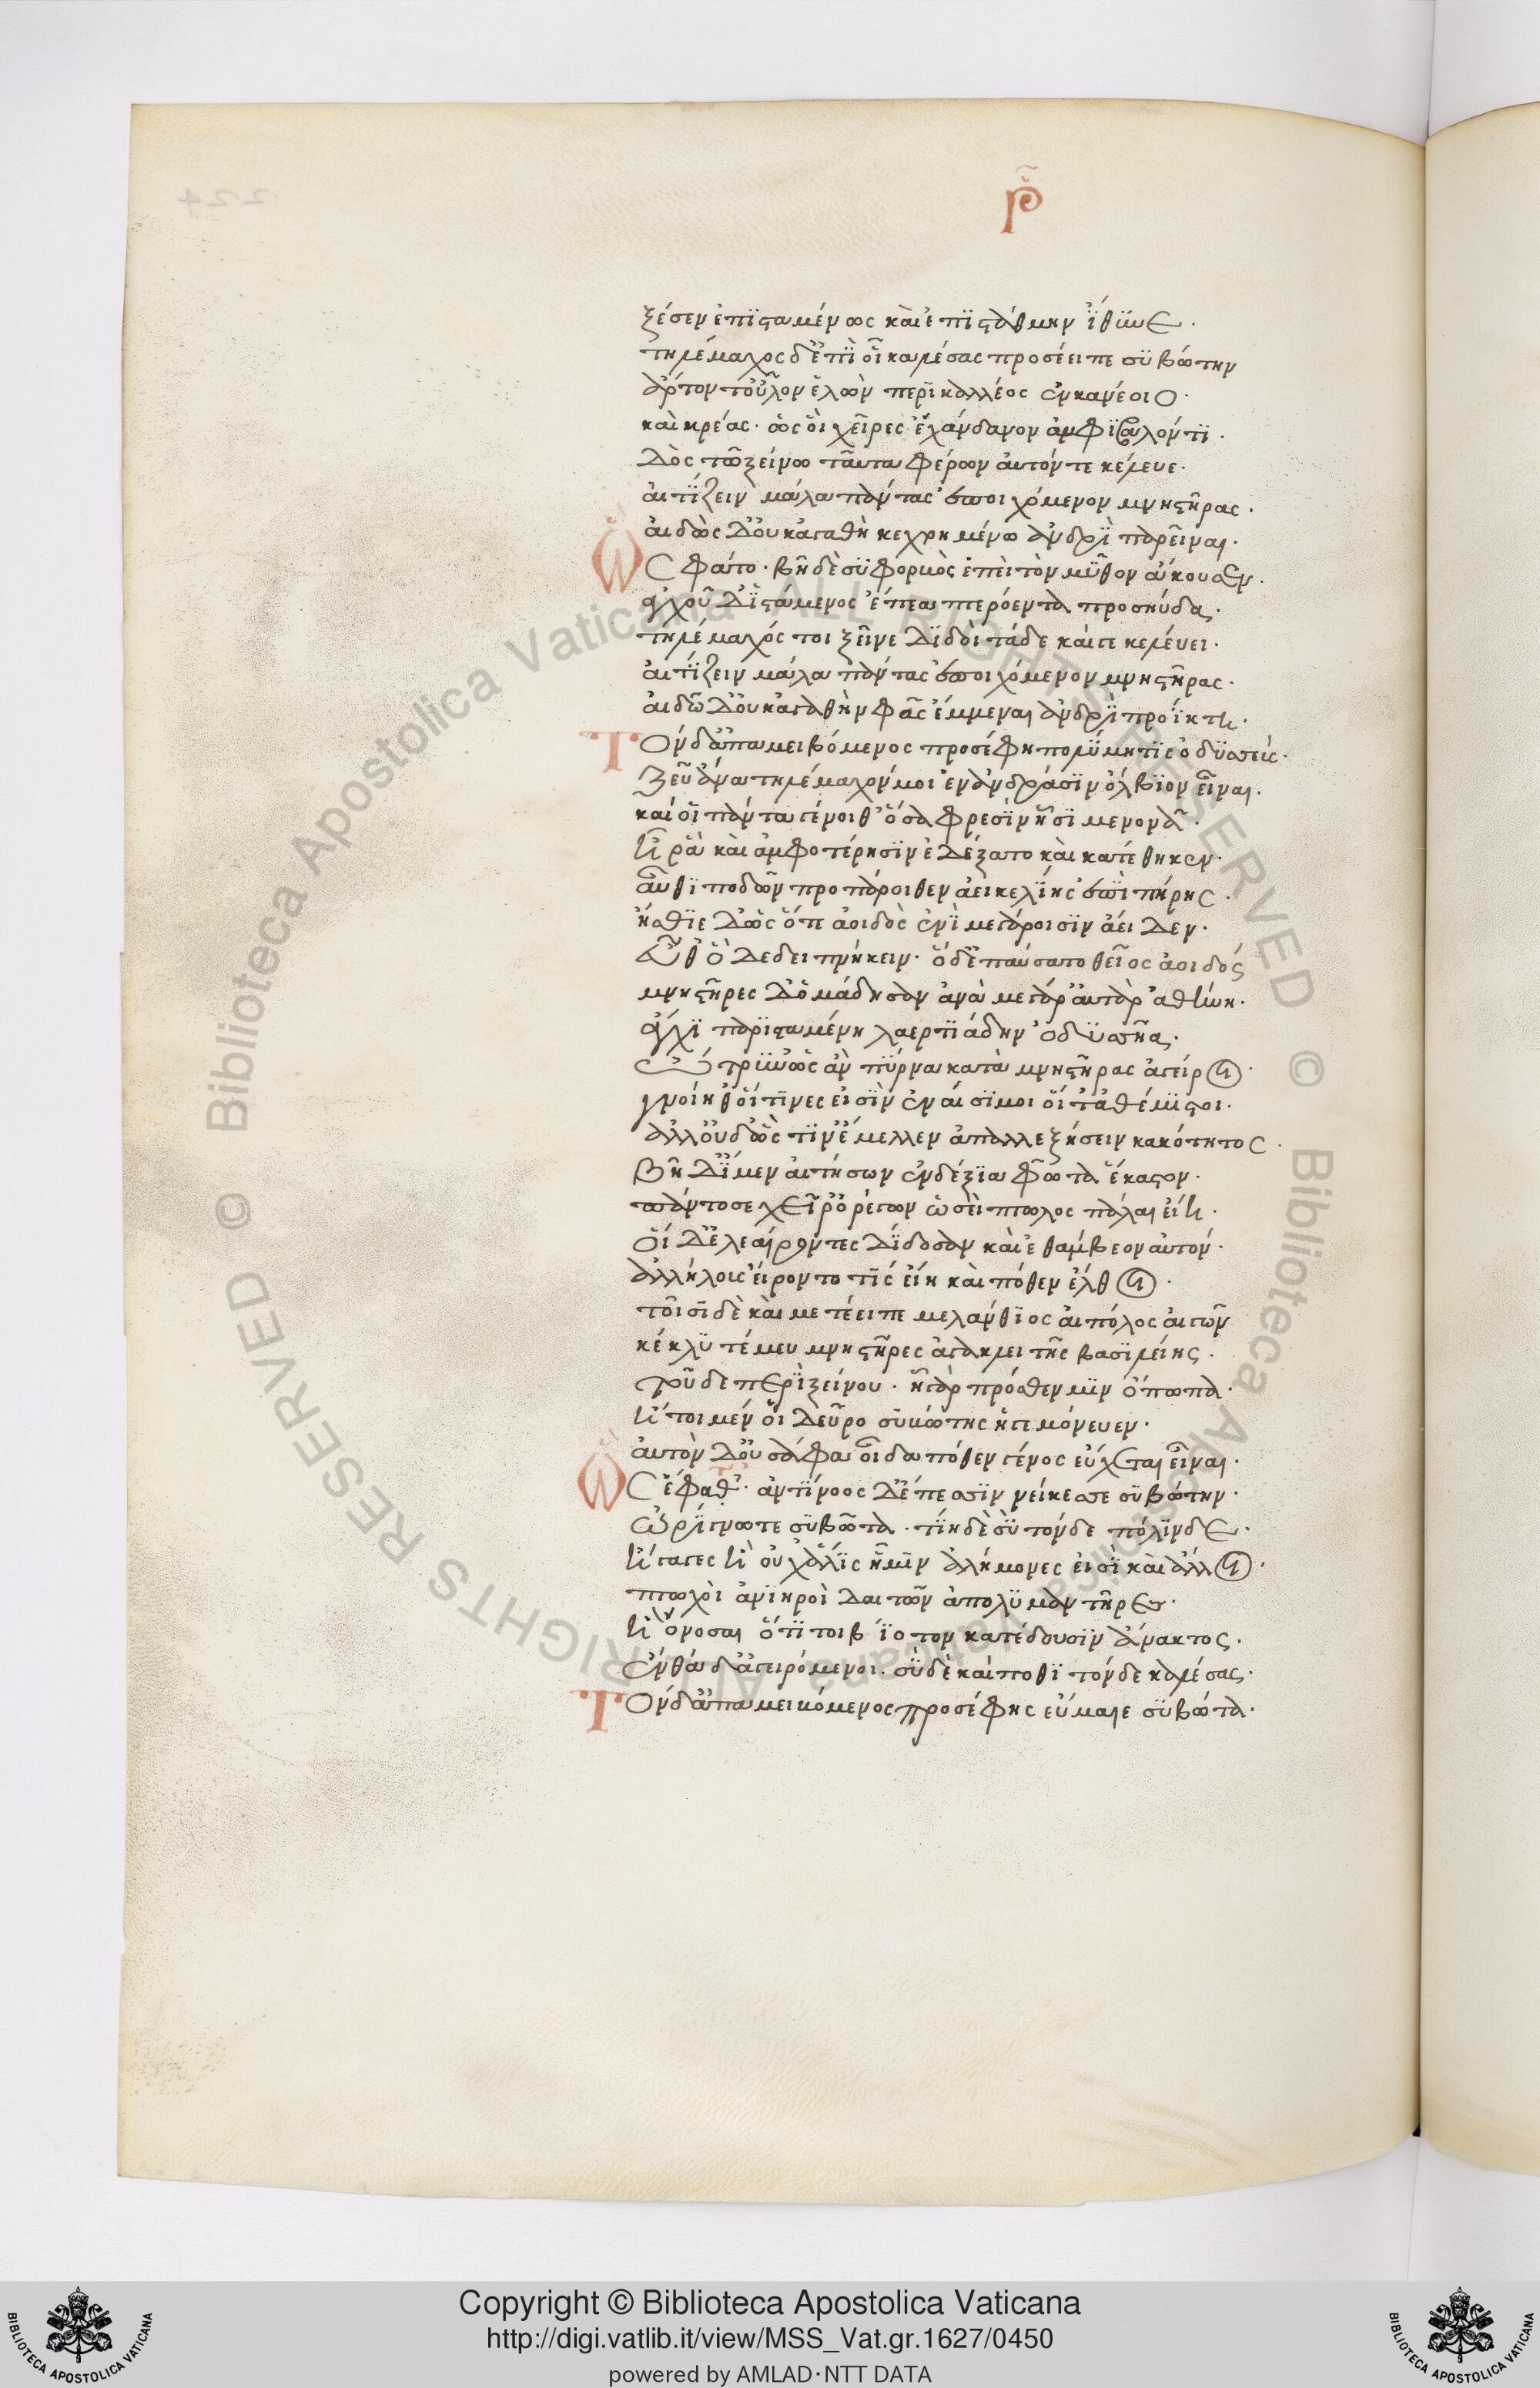 ρζ
ξέσεν ἐπϊσταμένως καὶ ἐπϊ στάθμην ἴθϋνε·
τηλέμαχος δ' ἐπῒ οἷ καλέσας προσέειπε συβώτην
ἄρτον τ' οὖλον ἑλὼν περϊκαλλέος ἐκ κανέοιο·
καὶ κρέας· ὥς οἱ χεῖρες ἐχάνδανον ἀμφϊβαλόντϊ·
Δὸς τῶ ξείνω ταῦτα φέρων αὐτόν τε κέλευε·
αἰτΐζειν μάλα πάντας ἐποιχόμενον μνηστῆρας·
αἰδὼς δ' οὐκ ἀγαθὴ κεχρημένω ἀνδρῒ παρεῖναι·
Ὣς φάτο· βῆ δὲ συφορβὸς ἐπεὶ τὸν μῦθον ἄκουσεν·
ἀγχοῦ δ' ϊστάμενος ἔπεα πτερόεντα προσηύδα·
τηλέμαχός τοι ξεῖνε δϊδοῖ τάδε καί σε κελεύει·
αἰτΐζειν μάλα πάντας ἐποιχόμενον μνηστῆρας·
αἰδῶ δ' οὐκ ἀγαθὴν φὰς ἔμμεναι ἀνδρῒ προΐκτη·
Τὸν δ' ἀπαμειβόμενος προσέφη πολύμητϊς ὀδϋσσεύς·
Ζεῦ ἄνα τηλέμαχόν μοι ἐν ἀνδράσϊν ὄλβϊον εἶναι·
καί οἱ πάντα γένοιθ' ὅσα φρεσῒν ἧσϊ μενοινᾶ·
ἦ ῥα καὶ ἀμφοτέρησϊν ἐδέξατο καὶ κατέθηκεν·
αὖθϊ ποδῶν προπάροιθεν ἀεικελΐης ἐπῒ πήρης·
ἤσθϊε δ' ὡς ὅτε ἀοιδὸς ἐνῒ μεγάροισϊν ἄειδεν·
εὖθ' ὁ δεδειπνήκειν· ὁ δ' ἐπαύσατο θεῖος ἀοιδός
μνηστῆρες δ' ὁμάδησαν ἀνὰ μέγαρ' αὐτὰρ ἀθήνη·
ἄγχϊ παρϊσταμένη λαερτϊάδην ὀδϋσσῆα·
ὤτρϋν' ὡς ἂν πύρνα κατὰ μνηστῆρας ἀγείροι·
γνοίη θ' οἵ τϊνες εἰσῒν ἐναίσϊμοι οἵ τ' ἀθέμϊστοι·
ἀλλ' οὐδ' ὥς τϊν' ἔμελλεν ἀπαλλεξήσειν κακότητος·
Βῆ δ' ΐμεν αἰτήσων ἐνδέξϊα φῶτα ἕκαστον·
πάντοσε χεῖρ' ὀρέγων ὡσεὶ πτωχὸς πάλαι εἴη·
οἱ δ' ἐλεαίροντες δΐδοσαν καὶ ἐθάμβεον αὐτόν·
ἀλλήλους εἴροντο τΐς εἴη καὶ πόθεν ἔλθοι·
τοῖσϊ δὲ καὶ μετέειπε μελάνθϊος αἰπόλος αἰγῶν
κέκλϋτέ μευ μνηστῆρες ἀγακλειτῆς βασϊλείης·
τοῦδε περῒ ξείνου· ἦ γὰρ πρόσθεν μϊν ὄπωπα·
ἤτοι μέν οἱ δεῦρο συβώτης ἡγεμόνευεν·
αὐτὸν δ' οὐ σάφα οἶδα πόθεν γένος εὔχεται εἶναι·
Ὣς ἔφαθ'· ἀντΐνοος δ' ἔπεσϊν νείκεσσε συβώτην·
Ὦ ἀρΐγνωτε συβῶτα· τΐη δὲ σϋ τόνδε πόλϊνδε·
ἤγαγες ἦ οὐχ ἅλϊς ἧμϊν ἀλήμονες εἰσῒ καὶ ἄλλοι·
πτωχοὶ ἀνϊηροὶ δαιτῶν ἀπολϋμαντῆρες·
ἦ ὄνοσαι ὅτϊ τοι βΐοτον κατέδουσϊν ἄνακτος·
ἐνθάδ' ἀγειρόμενοι· σὺ δὲ καί ποθϊ τόνδε καλέσας·
Τὸν δ' ἀπαμειβόμενος προσέφης εὔμαιε συβῶτα·
Copyright © Biblioteca Apostolica Vaticana
http://digi.vatlib.it/view/MSS_Vat.gr.1627/0450
powered by AMLAD·NTT DATA